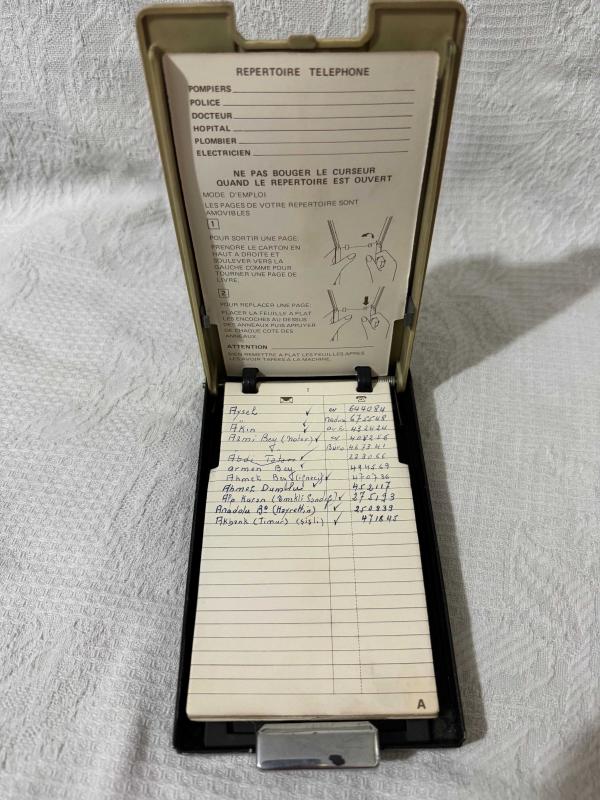 REPERTOIRE TELEPHONE
POMPIERS
POLICE
DOCTEUR
HOPITAL
PLOMBIER
ELECTRICIEN
NE PAS BOUGER LE CURSEUR
QUAND LE REPERTOIRE EST OUVERT
MODE D'EMPLOI
LES PAGES DE VOTRE REPERTOIRE SONT
AMOVIBLES
1
POUR SORTIR UNE PAGE:
PRENDRE LE CARTON EN
HAUT A DROITE ET
SOULEVER VERS LA
GAUCHE COMME POUR
TOURNER UNE PAGE DE
LIVRE.
2
POUR REPLACER UNE PAGE:
PLACER LA FEUILLE A PLAT
LES ENCOCHES AU DESSUS
DES ANNEAUX PUIS APPUYER
DE CHAQUE COTE DES
ANNEAUX.
ATTENTION
BIEN REMETTRE A PLAT LES FEUILLES APRES
LES AVOIR TAPEES A LA MACHINE.
1
Aysel ✓ ev 644084
" ✓ 675548
Akin ✓ 432424
Azmi Bey (noter) ✓ ev 408256
" Büro 467341
Abdi ✓
Armen Bey ✓ 494569
Ahmet Bey ✓ 470736
Ahmet ✓ 452117
Alp ✓ 275193
Anadolu (Hayrettin) ✓ 250839
Akbank (Timur) (Sisli) ✓ 471845
A